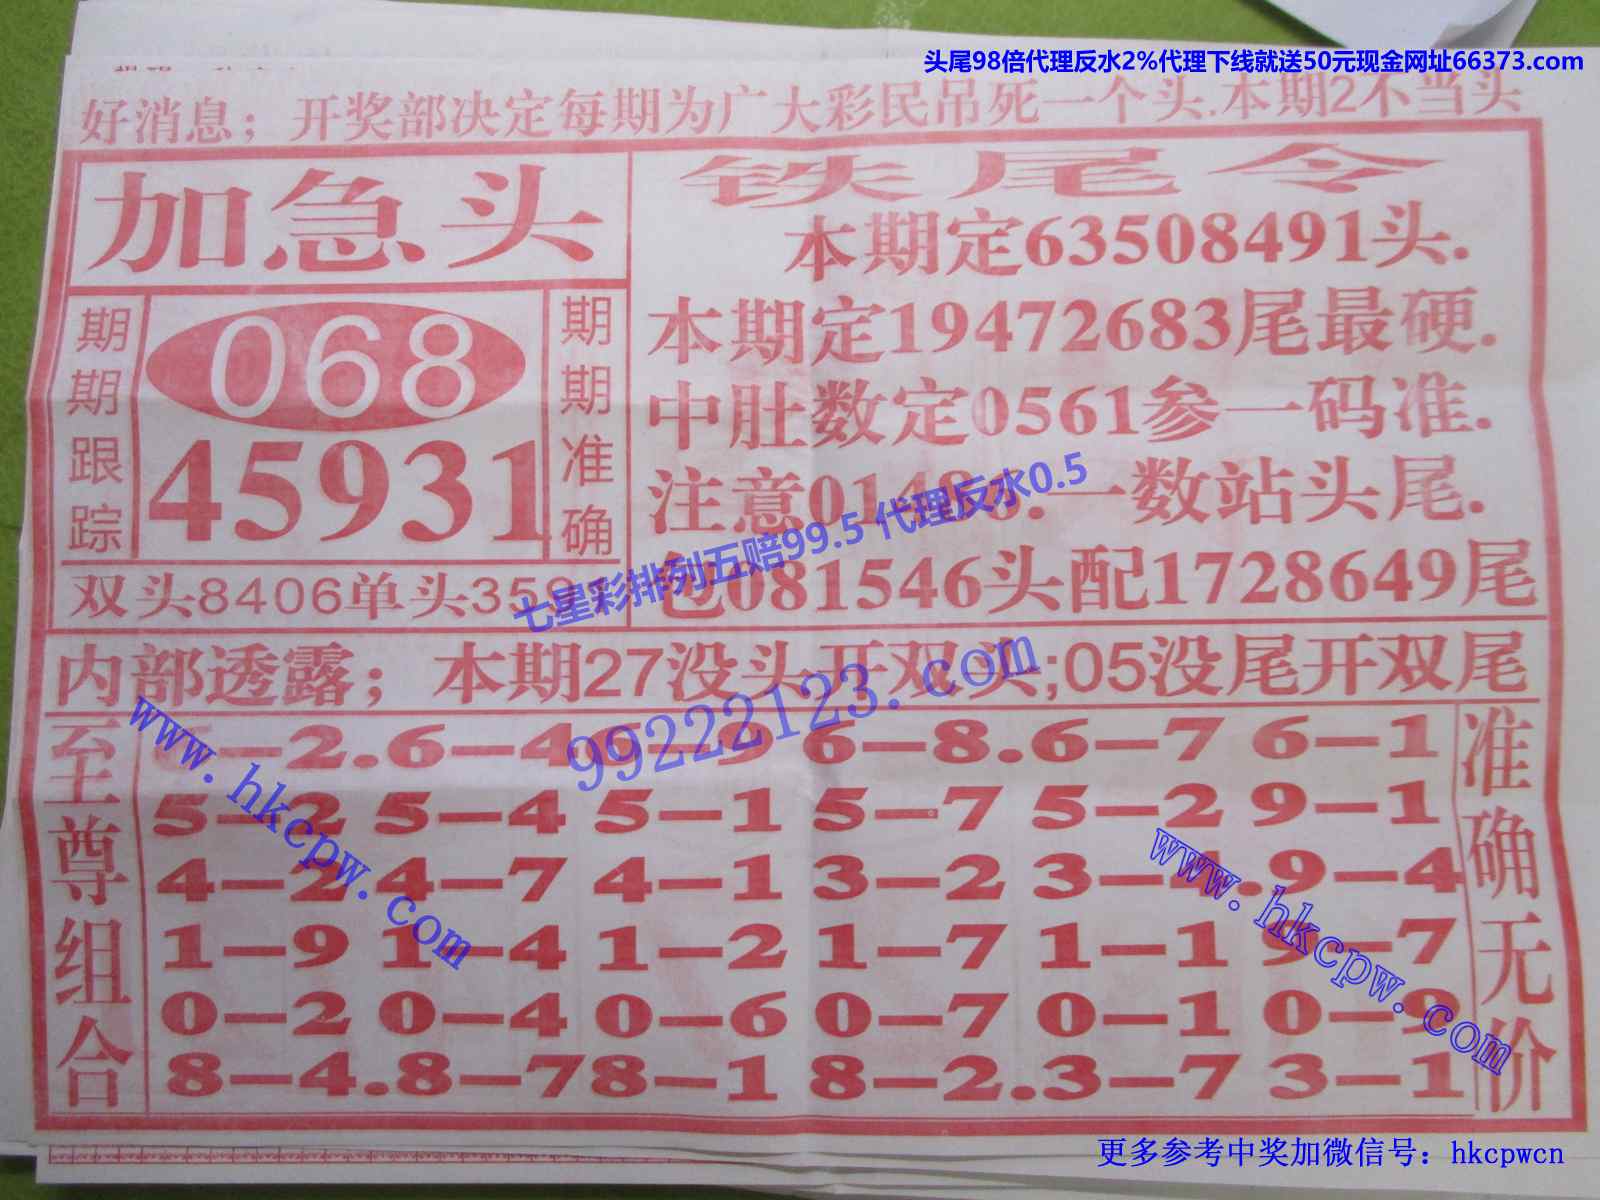 头尾98倍代理反水2%代理下线就送50元现金网址66373.com
好消息；开奖部决定每期为广大彩民吊死一个头.本期2不当头
加急头
期期跟踪
068
45931
期期准确
双头8406单头359
铁尾令
本期定63508491头.
本期定19472683尾最硬.
中肚数定0561参一码准.
注意014 一数站头尾.
包081546头配1728649尾
七星彩排列五赔99.5 代理反水0.5
内部透露；本期27没头开双头;05没尾开双尾
99222123.com
至尊组合
6—2.6—4 6—9 6—8.6—7 6—1
5—2 5—4 5—1 5—7 5—2 9—1
4—2 4—7 4—1 3—2 3—4.9—4
1—9 1—4 1—2 1—7 1—1 9—7
0—2 0—4 0—6 0—7 0—1 0—9
8—4.8—7 8—1 8—2.3—7 3—1
准确无价
www.hkcpw.com
www.hkcpw.com
更多参考中奖加微信号：hkcpwcn